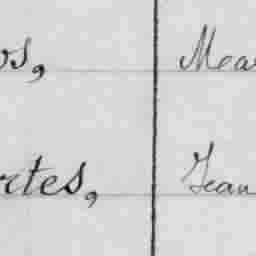 os, Mea
rtes, Jean